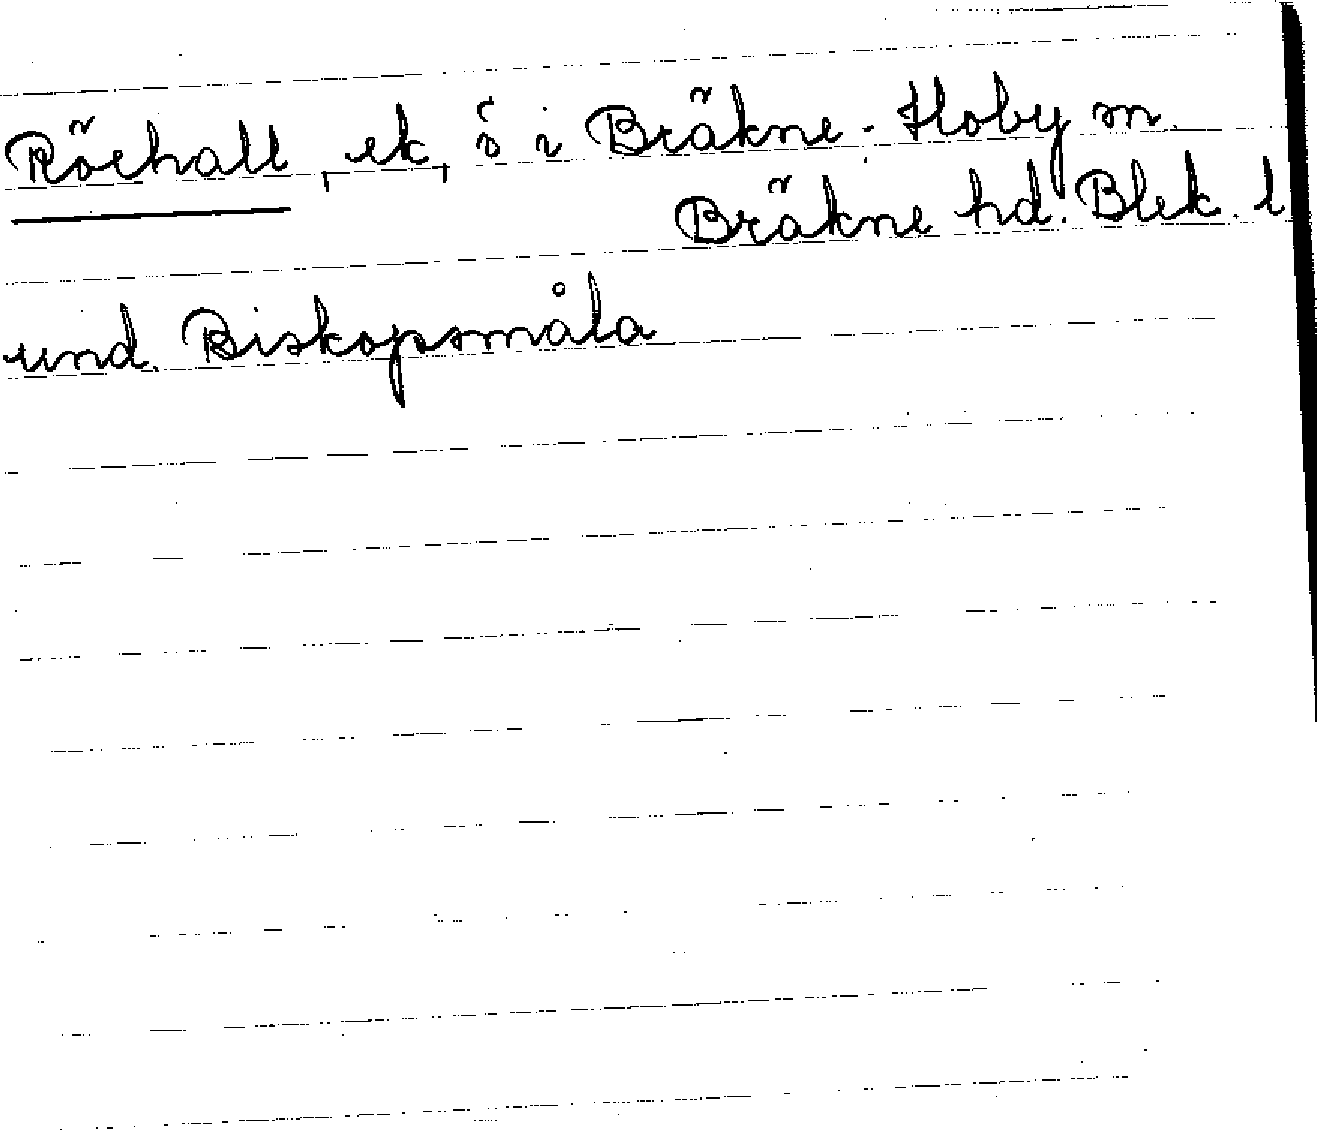 Röehall, ek, ö i Bräkne-Hoby sn.
Bräkne hd. Blek. l
und. Biskopsmåla